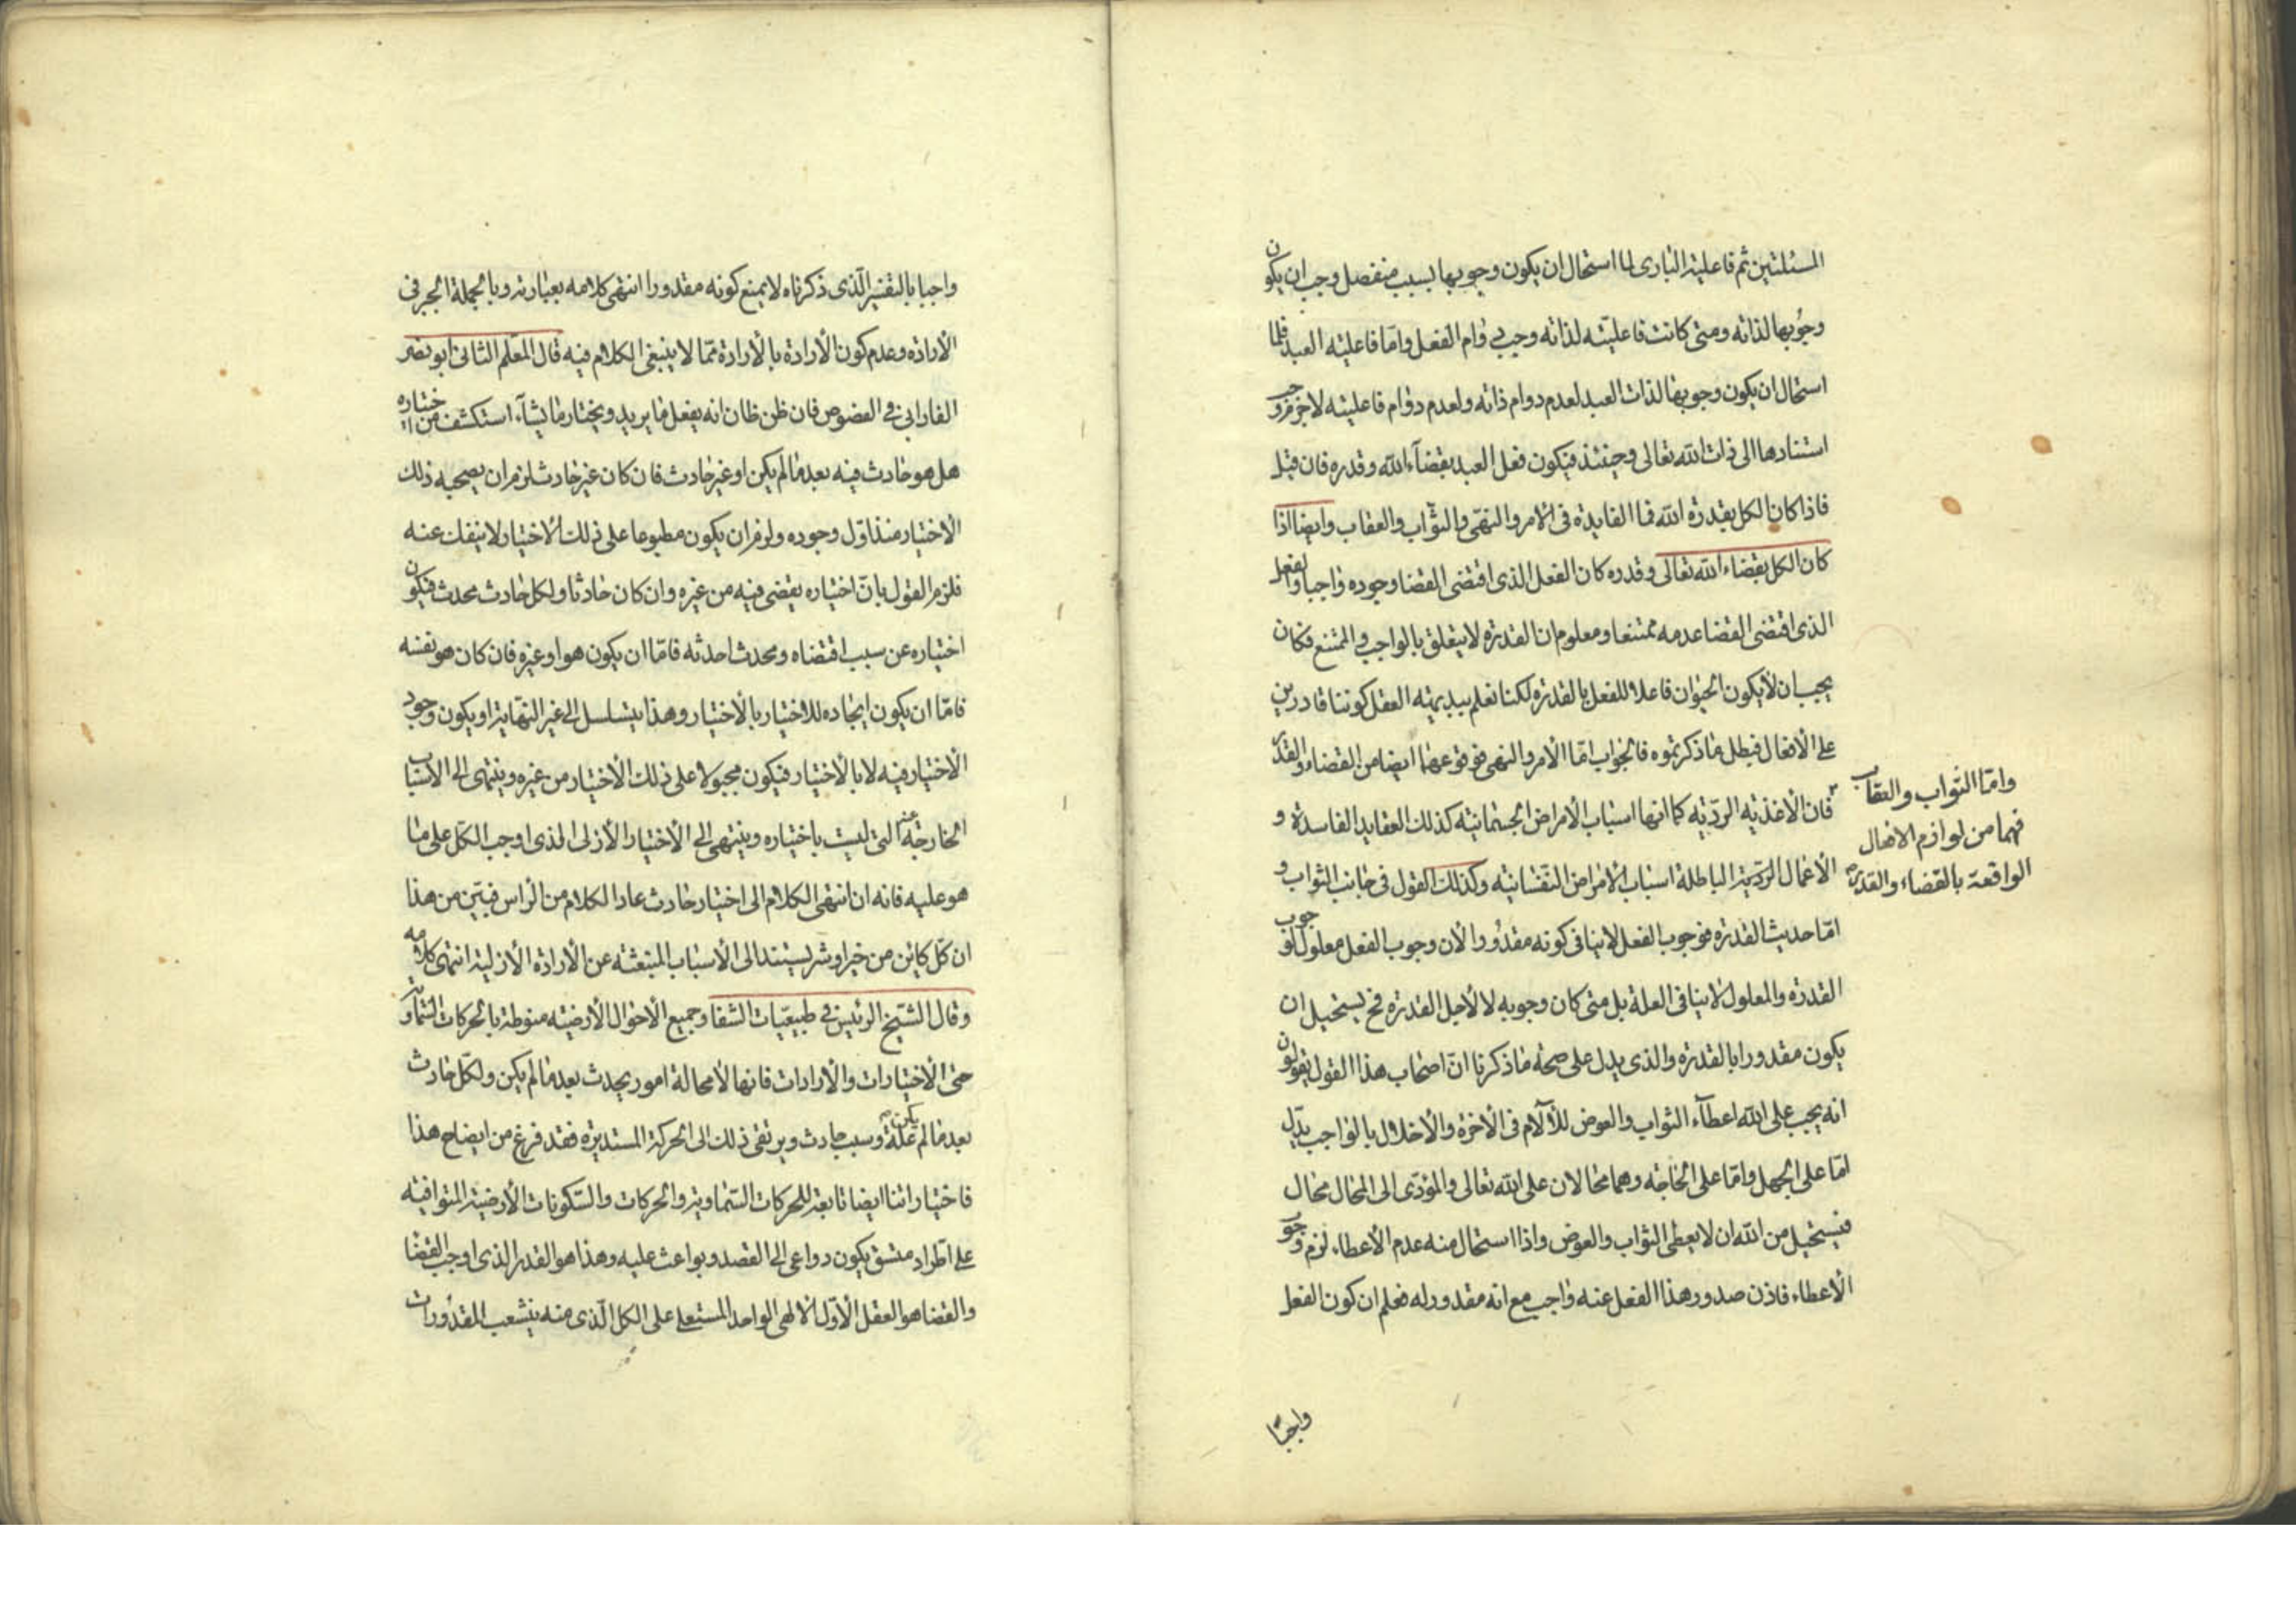 المسئلتين ثم فاعلية الباری لما استحال ان يكون وجوبها بسبب منفصل وجب ان يكون
وجوبها لذاته ومتى كانت فاعليته لذاته وجب دوام الفعل وامّا فاعليته العبد فلما
استحال ان يكون وجوبها لذات العبد لعدم دوام ذاته ولعدم دوام فاعليته لاجرم وجب
استنادها الى ذات الله تعالى وحينئذ فيكون فعل العبد بقضآء الله وقدره فان قيل
فاذا كان الكل بقدرة الله فما الفايدة فى الامر والنهى والثوّاب والعقاب وايضا اذا
كان الكل بقضاء الله تعالى وقدره كان الفعل الذى اقتضى القضا وجوده واجبا والفعل
الذى اقتضى القضا عدمه ممتنعا ومعلوم ان القدرة لا يتعلق بالواجب والممتنع فكان
يجب ان لا يكون الحيوان فاعلا للفعل بالقدرة لكنا نعلم ببديهته العقل كوننا قادرين
على الأفعال فبطل ما ذكرتموه فالجواب امّا الأمر والنهى فوقوعهما ايضا من القضاء والقدر
وامّا الثواب والعقاب
فهما من لوازم الافعال
الواقعة بالقضاء والقدر
فان الأغذيه الردّيه كما انها اسباب الأمراض الجسمانيه كذلك العقايد الفاسدة و
الأعمال الرّديّة الباطلة اسباب الأمراض النفسانيه وكذلك القول فى جانب الثواب و
امّا حديث القدرة فوجوب الفعل لا ينافى كونه مقدورا لأن وجوب الفعل معلول لوجوب
القدرة والمعلول لا ينافى العلة بل متى كان وجوبه لا لأجل القدرة فح يستحيل ان
يكون مقدورا بالقدرة والذى يدل على صحة ما ذكرنا انّ اصحاب هذا القول يقولون
انه يجب على الله اعطآء الثواب والعوض للألام فى الأخرة والأخلال بالواجب يدّل
امّا على الجهل وامّا على الحاجة وهما محالان على الله تعالى والمؤدّى الى المحال محال
فيستحيل من الله ان لا يعطى الثواب والعوض واذا استحال منه عدم الأعطاء لزم وجوب
الأعطاء فاذن صدور هذا الفعل عنه واجب مع انه مقدور له فعلم ان كون الفعل
واجبًا
واجبا بالتفسير الّذى ذكرناه لا يمنع كونه مقدورا انتهى كلامه بعبارته وبالجملة الجبر فى
الأرادة وعدم كون الأرادة بالأرادة ممّا لا ينبغى الكلام فيه قال المعلّم الثانى ابو نصر
الفارابى فى الفصوص فان ظن ظان انه يفعل ما يريد ويختار ما يشآء استكشف من اختياره
هل هو حادث فيه بعد ما لم يكن او غير حادث فان كان غير حادث لزم ان يصحبه ذلك
الاختيار منذ اوّل وجوده ولزم ان يكون مطبوعا على ذلك الاختيار لا ينفك عنه
فلزم القول بانّ اختياره يقضى فيه من غيره وان كان حادثا ولكل حادث محدث فيكون
اختياره عن سبب اقتضاه ومحدث احدثه فامّا ان يكون هو او غيره فان كان هو نفسه
فامّا ان يكون ايجاده للاختيار بالأختيار وهذا يتسلسل الى غير النهاية او يكون وجود
الأختيار فيه لا بالأختيار فيكون مجبولا على ذلك الأختيار من غيره وينتهى الى الأسباب
الخارجة عنه التى ليست باختياره وينتهى الى الأختيار الأزلى الذى اوجب الكّل على ما
هو عليه فانه ان انتهى الكلام الى اختيار حادث عاد الكلام من الرأس فبيّن من هذا
ان كّل كاين من خير او شر يستند الى الأسباب المنبعثة عن الأرادة الأزلية انتهى كلامه
وقال الشيخ الرئيس فى طبيعيّات الشفا وجميع الأحوال الأرضيه منوطة بالحركات السماويه
حتى الأختيارات والأرادات فانها لا محالة امور يحدث بعد ما لم يكن ولكّل حادث
بعد ما لم يكن علّة وسبب حادث ويرتقى ذلك الى الحركة المستديرة فقد فرغ من ايضاح هذا
فاختياراتنا ايضا تابعة للحركات السّماوية والحركات والسّكونات الأرضية المتوافيه
على اطّراد متسق يكون دواعى الى القصد وبواعث عليه وهذا هو القدر الذى اوجبه القضا
والقضا هو العقل الأوّل الالهى الواحد المستعلى على الكل الّذى منه ينشعب المقدورات